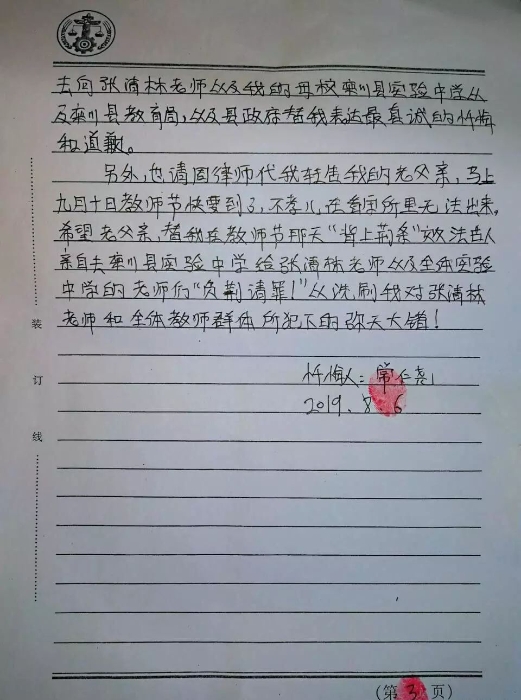 去向张清林老师以及我的母校栾川县实验中学以
及栾川县教育局,以及县政府替我表达最真诚的忏悔
和道歉。
另外,也请周律师代我转告我的老父亲,马上
九月十日教师节快要到了,不孝儿在看守所里无法出来,
希望老父亲,替我在教师节那天“背上荆条”效法古人
亲自去栾川县实验中学给张清林老师以及全体实验
中学的老师们“负荆请罪!”以洗刷我对张清林
老师和全体教师群体所犯下的弥天大错!
忏悔人:常仁尧
2019.8.6
装
订
线
(第3页)